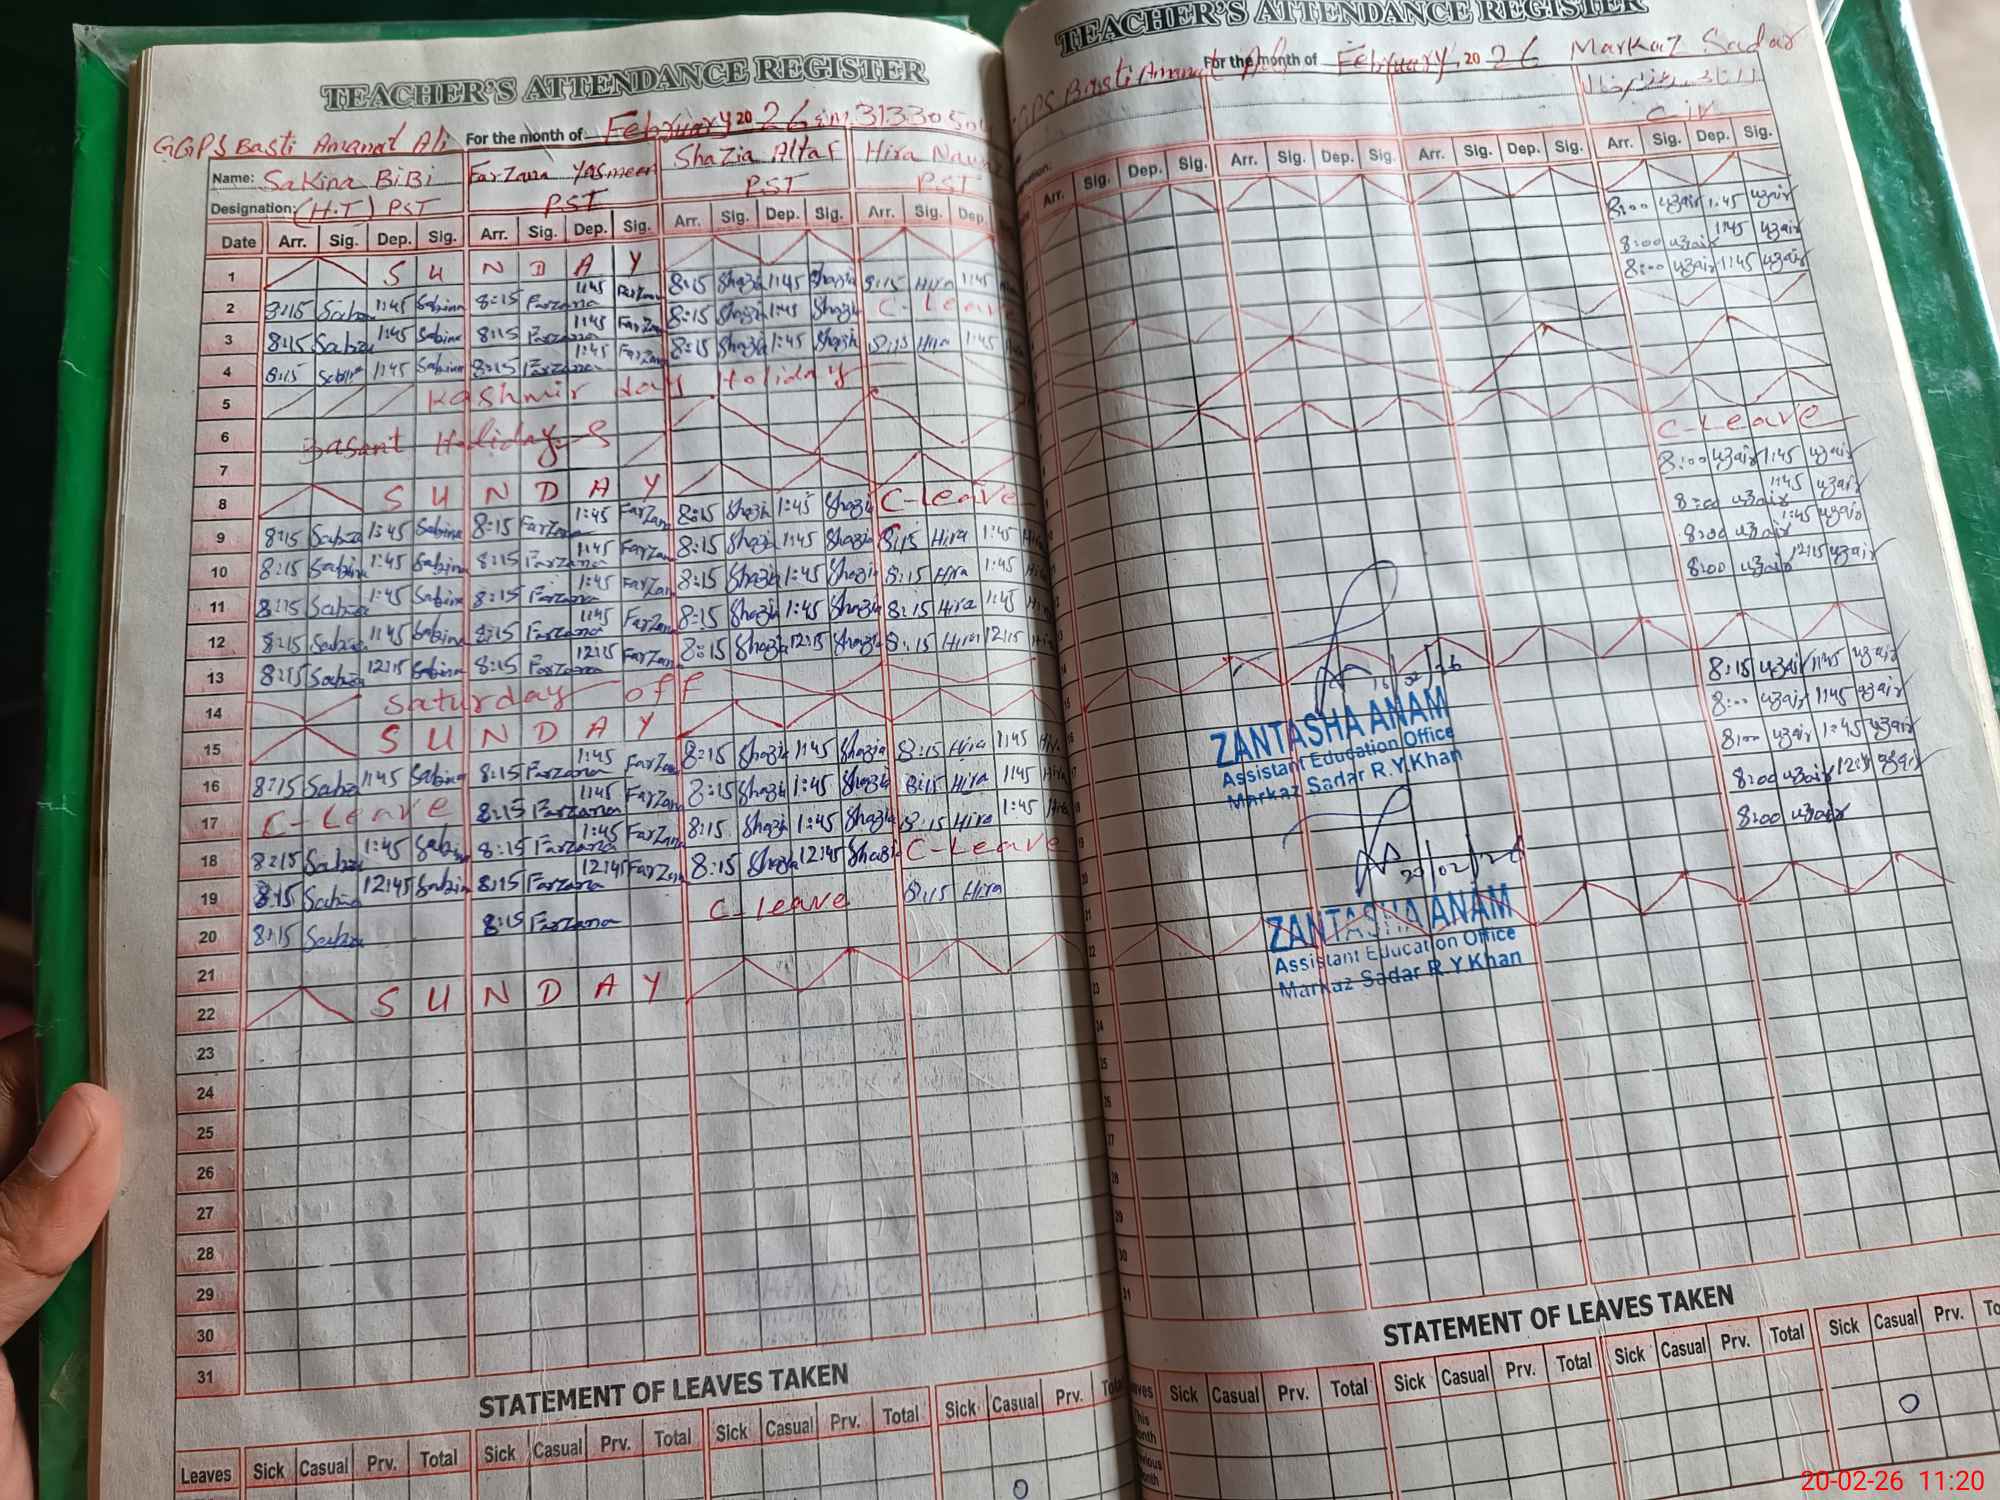 TEACHER'S ATTENDANCE REGISTER
GGPS Basti Amanat Ali For the month of February 2026
Name: Sakina BiBi Farzana Yasmeen Shazia Altaf Hira
Designation: (H.T) PST PST PST PST
Date Arr. Sig. Dep. Sig. Arr. Sig. Dep. Sig. Arr. Sig. Dep. Sig. Arr. Sig. Dep.
1 SUNDAY
2 8:15 1:45 Sabina 8:15 Farzana 1:45 Farzana 8:15 Shazia 1:45 Shazia 8:15 Hira 1:45
3 8:15 1:45 Sabina 8:15 Farzana 1:45 Farzana 8:15 Shazia 1:45 Shazia C-Leave
4 8:15 1:45 Sabina 8:15 Farzana 1:45 Farzana 8:15 Shazia 1:45 Shazia 8:15 Hira 1:45
5 Kashmir day Holiday
6 Basant Holidays
7
8 SUNDAY
9 8:15 1:45 Sabina 8:15 Farzana 1:45 Farzana 8:15 Shazia 1:45 Shazia C-Leave
10 8:15 1:45 Sabina 8:15 Farzana 1:45 Farzana 8:15 Shazia 1:45 Shazia 8:15 Hira 1:45
11 8:15 1:45 Sabina 8:15 Farzana 1:45 Farzana 8:15 Shazia 1:45 Shazia 8:15 Hira 1:45
12 8:15 1:45 Sabina 8:15 Farzana 1:45 Farzana 8:15 Shazia 1:45 Shazia 8:15 Hira 1:45
13 8:15 12:15 Sabina 8:15 Farzana 12:15 Farzana 8:15 Shazia 12:15 Shazia 8:15 Hira 12:15
14 Saturday off
15 SUNDAY
16 8:15 1:45 Sabina 8:15 Farzana 1:45 Farzana 8:15 Shazia 1:45 Shazia 8:15 Hira 1:45 Hira
17 C-Leave 8:15 Farzana 1:45 Farzana 8:15 Shazia 1:45 Shazia 8:15 Hira 1:45 Hira
18 8:15 1:45 Sabina 8:15 Farzana 1:45 Farzana 8:15 Shazia 1:45 Shazia 8:15 Hira 1:45 Hira
19 8:15 12:45 Sabina 8:15 Farzana 12:45 Farzana 8:15 Shazia 12:45 Shazia C-Leave
20 8:15 8:15 Farzana C-Leave 8:15 Hira
21
22 SUNDAY
23
24
25
26
27
28
29
30
31
STATEMENT OF LEAVES TAKEN
Leaves Sick Casual Prv. Total Sick Casual Prv. Total Sick Casual Prv. Total Sick Casual Prv.
0
TEACHER'S ATTENDANCE REGISTER
GGPS Basti Amanat Ali For the month of February, 2026 Markaz Sadar
Arr. Sig. Dep. Sig. Arr. Sig. Dep. Sig. Arr. Sig. Dep. Sig. Arr. Sig. Dep. Sig.
8:00 uzair 1:45 uzair
8:00 uzair 1:45 uzair
8:00 uzair 1:45 uzair
C-Leave
8:00 uzair 1:45 uzair
8:00 uzair 1:45 uzair
8:00 uzair 1:45 uzair
8:00 uzair 12:15 uzair
8:15 uzair 1:45 uzair
8:00 uzair 1:45 uzair
8:00 uzair 1:45 uzair
8:00 uzair uzair
8:00 uzair
16/02/26
ZANTASHA ANAM
Assistant Education Office
Markaz Sadar R.Y.Khan
20/02/26
ZANTASHA ANAM
Assistant Education Office
Markaz Sadar R.Y.Khan
STATEMENT OF LEAVES TAKEN
Sick Casual Prv. Total Sick Casual Prv. Total Sick Casual Prv. Total Sick Casual Prv.
0
20-02-26 11:20